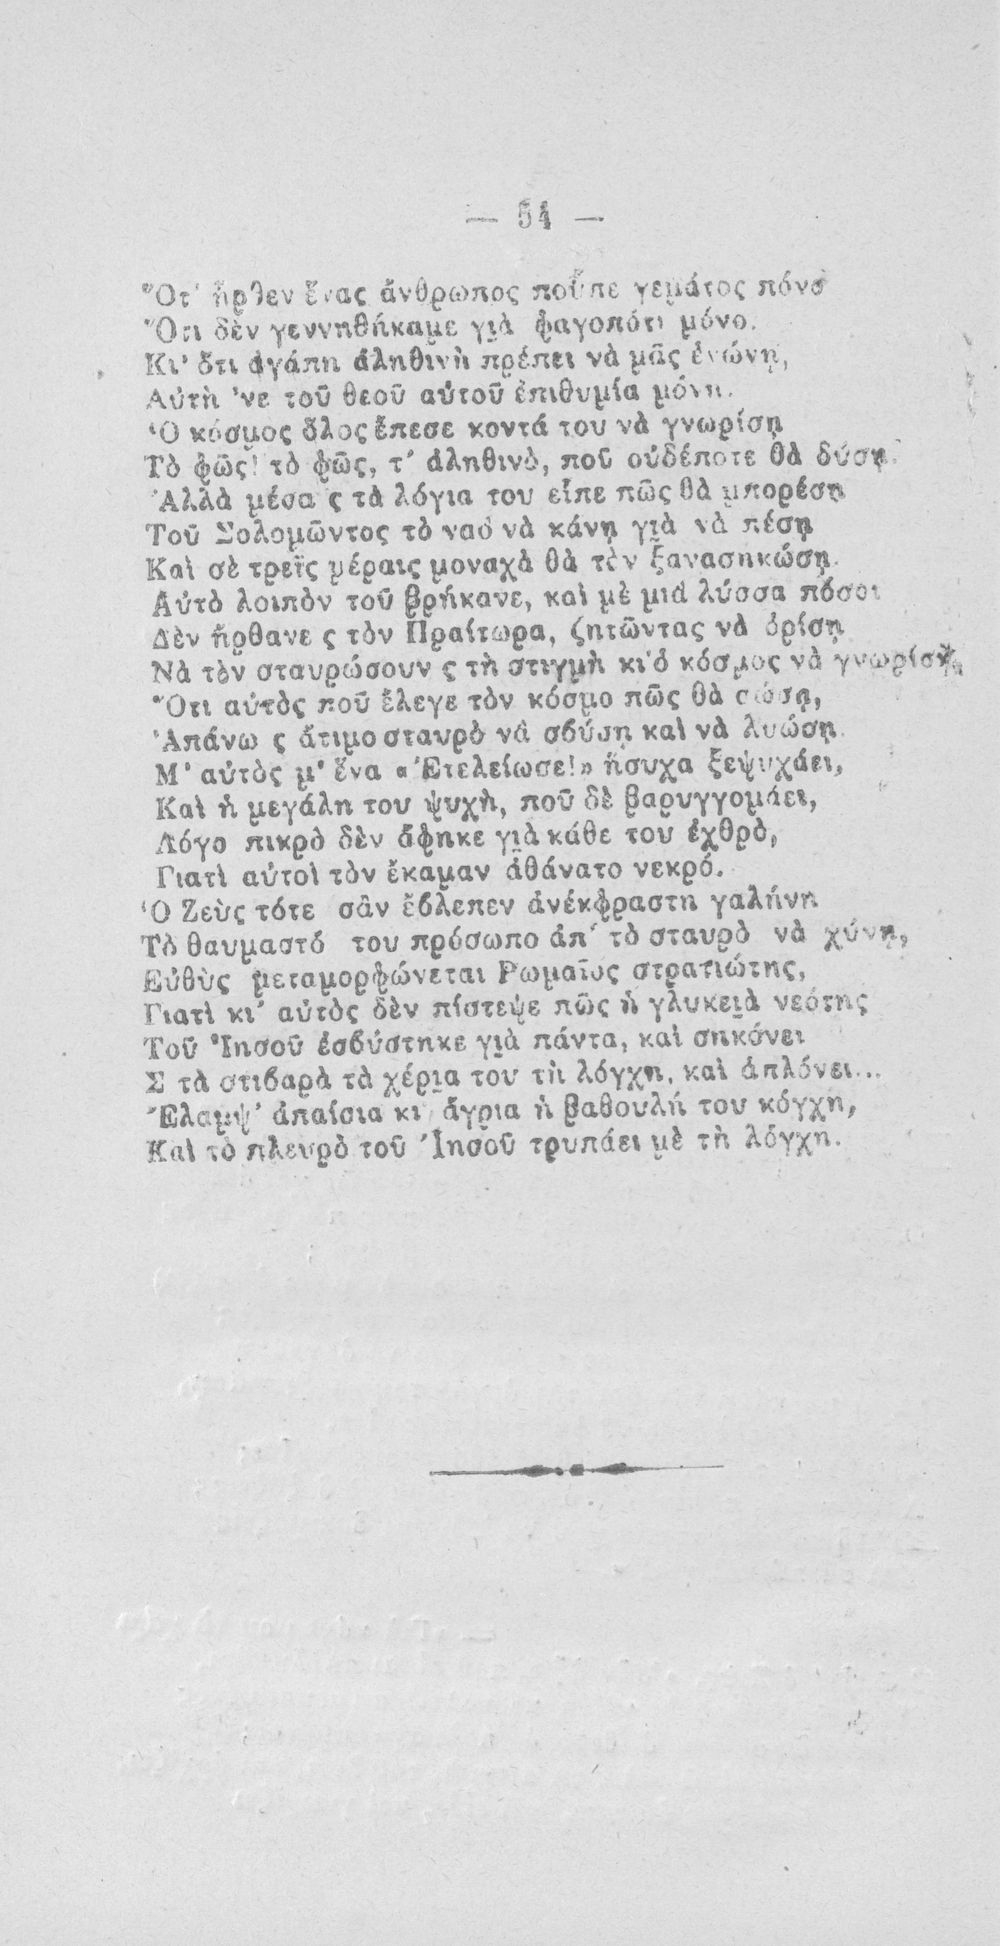 — 54 —
Ὅτ' ἦρθεν ἕνας ἄνθρωπος ποὖπε γεμάτος πόνο
Ὅτι δὲν γεννηθήκαμε γιὰ φαγοπότι μόνο.
Κι' ὅτι ἀγάπη ἀληθινὴ πρέπει νὰ μᾶς ἑνώνῃ,
Αὐτὴ 'νε τοῦ θεοῦ αὐτοῦ ἐπιθυμία μόνη.
Ὁ κόσμος ὅλος ἔπεσε κοντά του νὰ γνωρίσῃ
Τὸ φῶς! τὸ φῶς, τ' ἀληθινὸ, ποῦ οὐδέποτε θὰ δύσῃ.
Ἀλλὰ μέσα ς τὰ λόγια του εἶπε πῶς θὰ μπορέσῃ
Τοῦ Σολομῶντος τὸ ναὸ νὰ κάνῃ γιὰ νὰ πέσῃ
Καὶ σὲ τρεῖς μέραις μοναχὰ θὰ τὸν ξανασηκώσῃ.
Αὐτὸ λοιπὸν τοῦ βρήκανε, καὶ μὲ μιὰ λύσσα πόσοι
Δὲν ἤρθανε ς τὸν Πραίτωρα, ζητῶντας νὰ ὁρίσῃ
Νὰ τὸν σταυρώσουν ς τὴ στιγμὴ κι' ὁ κόσμος νὰ γνωρίσῃ,
Ὅτι αὐτὸς ποῦ ἔλεγε τὸν κόσμο πῶς θὰ σώσῃ,
Ἀπάνω ς ἄτιμο σταυρὸ νὰ σβύσῃ καὶ νὰ λυώσῃ.
Μ' αὐτὸς μ' ἕνα «Ἐτελείωσε!» ἥσυχα ξεψυχάει,
Καὶ ἡ μεγάλη του ψυχὴ, ποῦ δὲ βαρυγγομάει,
Λόγο πικρὸ δὲν ἄφηκε γιὰ κάθε του ἐχθρὸ,
Γιατὶ αὐτοὶ τὸν ἔκαμαν ἀθάνατο νεκρό.
Ὁ Ζεὺς τότε σὰν ἔβλεπεν ἀνέκφραστη γαλήνη
Τὸ θαυμαστό του πρόσωπο ἀπ' τὸ σταυρὸ νὰ χύνῃ,
Εὐθὺς μεταμορφώνεται Ρωμαῖος στρατιώτης,
Γιατὶ κι' αὐτὸς δὲν πίστεψε πῶς ἡ γλυκειὰ νεότης
Τοῦ Ἰησοῦ ἐσβύστηκε γιὰ πάντα, καὶ σηκόνει
Σ τὰ στιβαρὰ τὰ χέρια του τὴ λόγχη, καὶ ἁπλόνει...
Ἔλαμψ' ἀπαίσια κι' ἄγρια ἡ βαθουλή του κόγχη,
Καὶ τὸ πλευρὸ τοῦ Ἰησοῦ τρυπάει μὲ τὴ λόγχη.